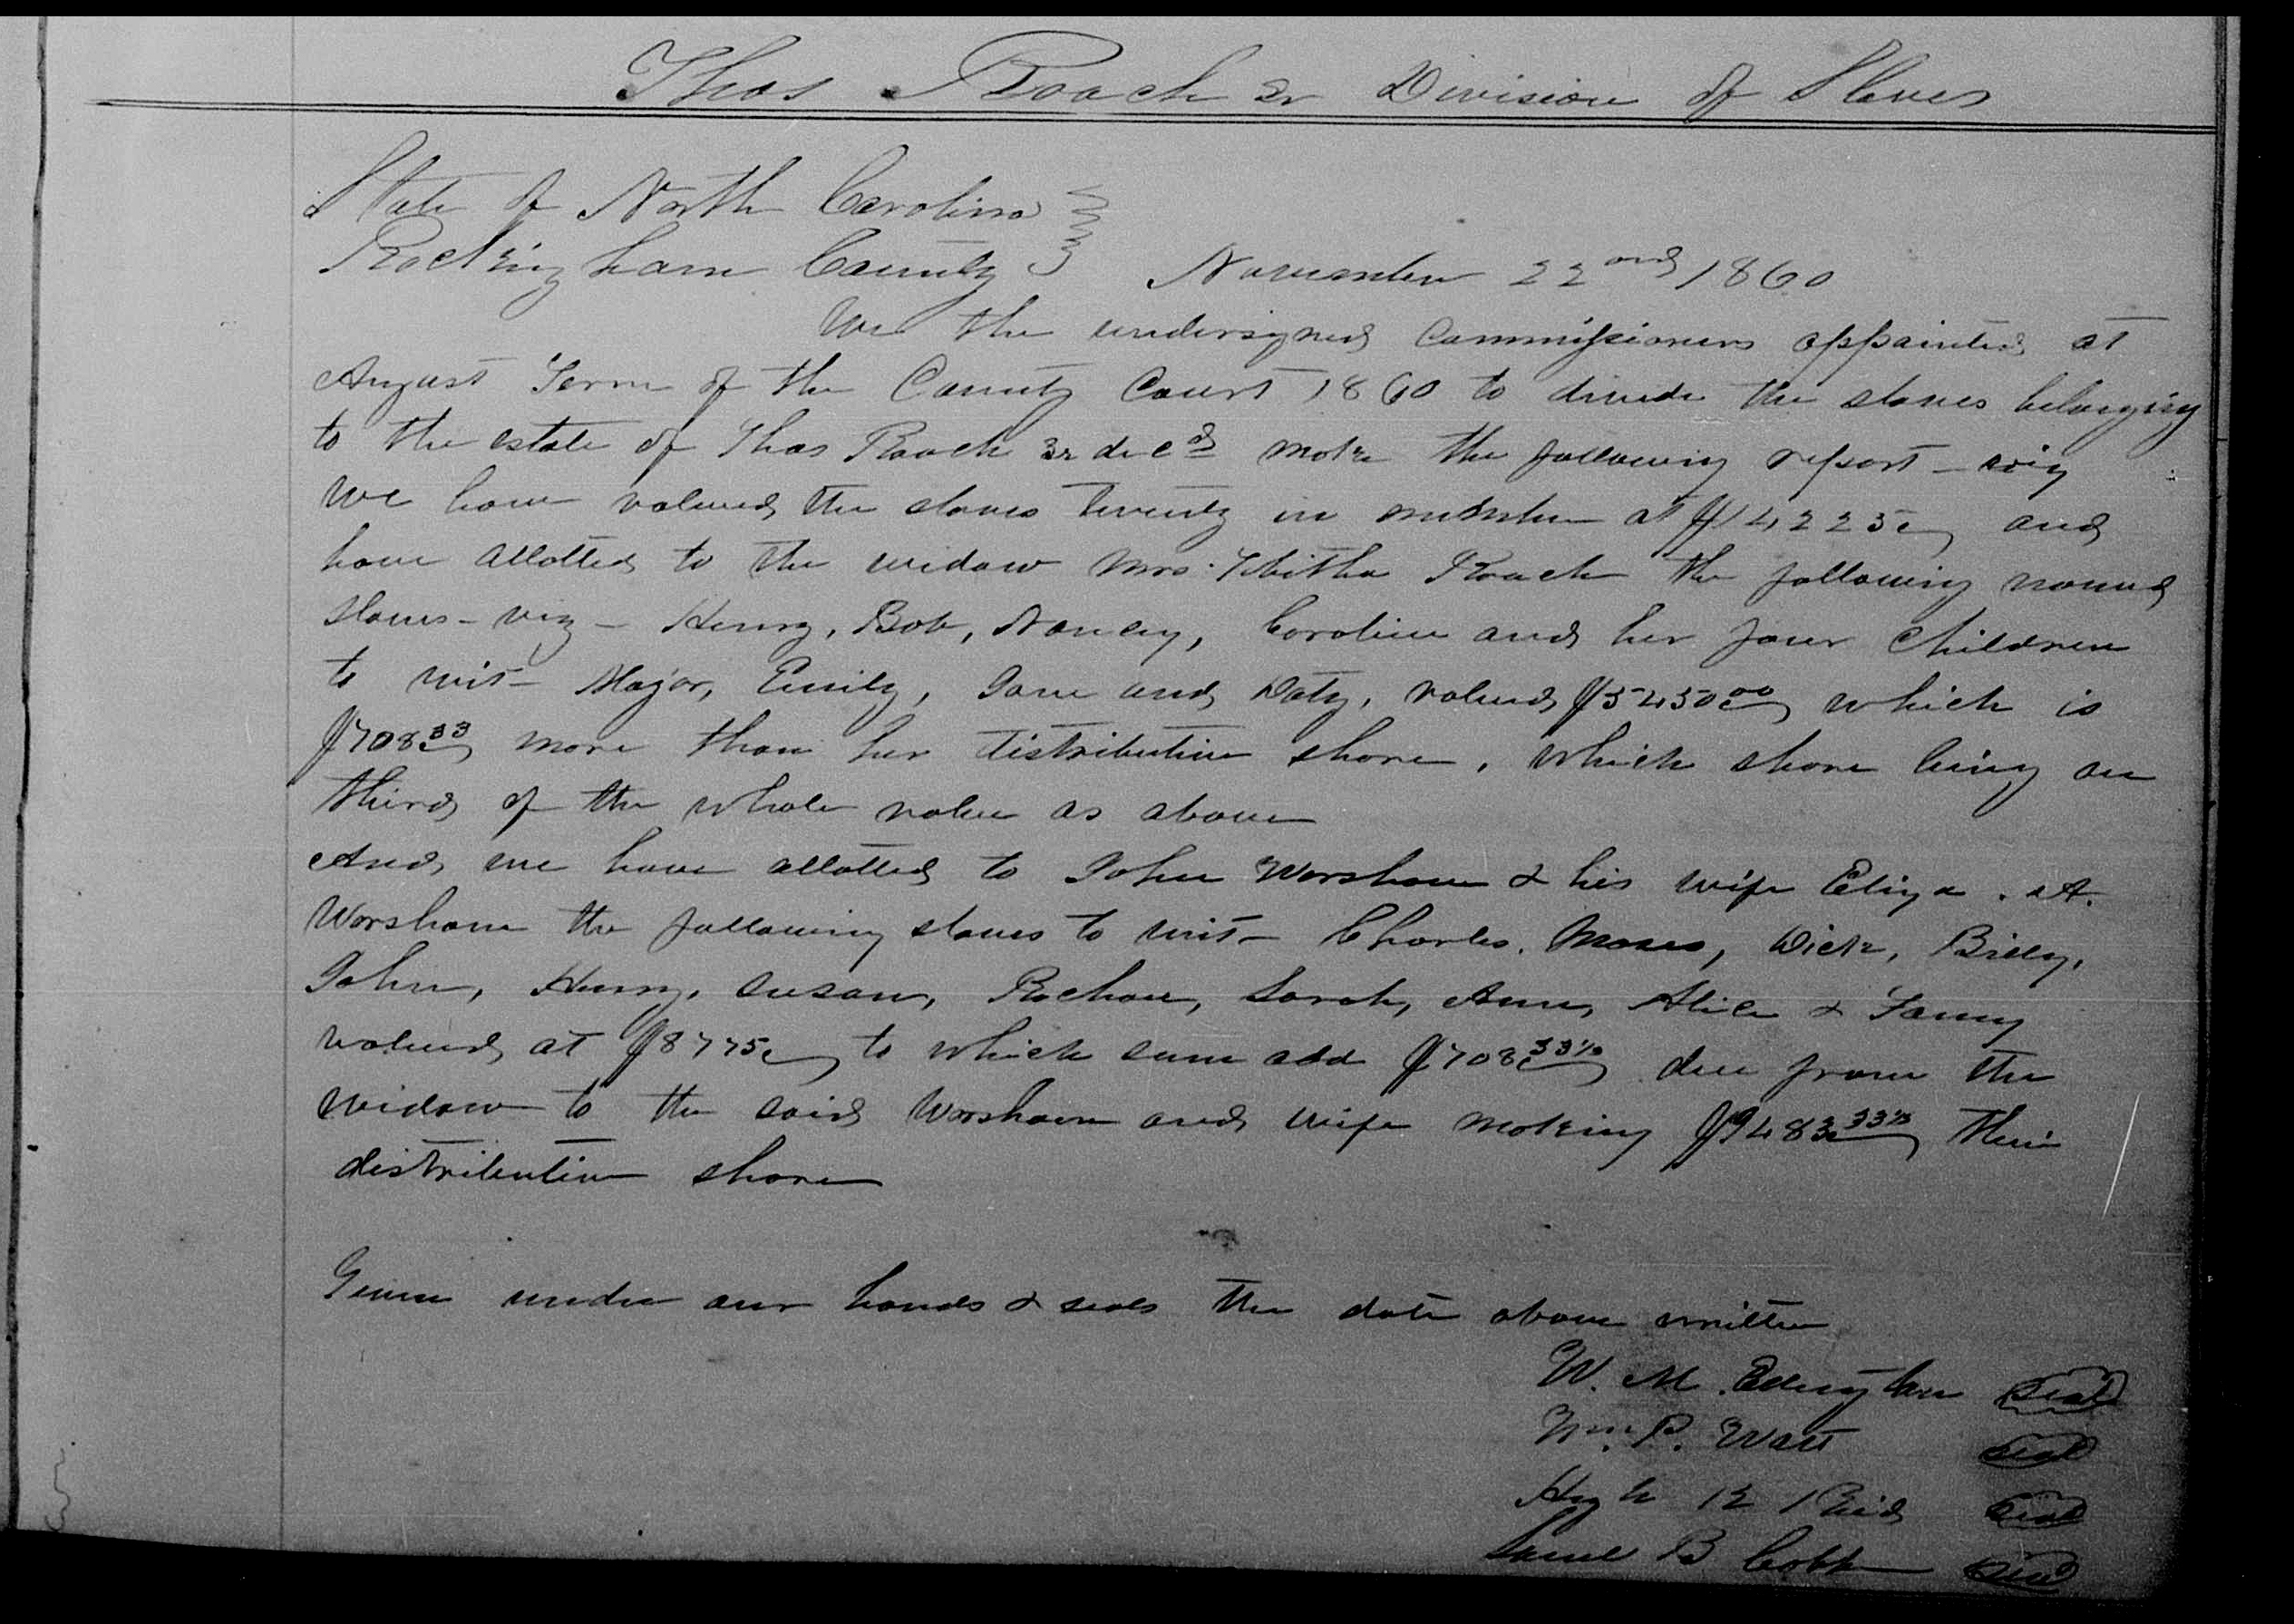 Thos Roach Sr Division of Slaves
State of North Carolina
Rockingham County November 22nd 1860
We the undersigned Commissioners appointed at
August Term of the County Court 1860 to divide the slaves belonging
to the estate of Thos Roach Sr decd make the following report - viz
We have valued the slaves twenty in number at $14225 and
have allotted to the widow Mrs. Tibitha Roach the following named
slaves - viz - Henry, Bob, Nancy, Caroline and her four children
to wit - Major, Emily, Jane and Daty, valued $5450.00 which is
$708.33 more than her distributive share, which share being one
third of the whole value as above
And we have allotted to John Worsham & his wife Eliza. A.
Worsham the following slaves to wit - Charles, Moses, Dick, Billy,
John, Henry, Susan, Rachau, Sarah, Ann, Alice & Fanny
valued at $8775 to which sum add $708.33⅓ due from the
widow to the said Worsham and wife making $9483.33⅓ their
distributive share
Given under our hands & seals the date above written
W. M. Ellington Seal
Wm. P. Watt Seal
Hugh K Reid Seal
Saml B Cobb Seal